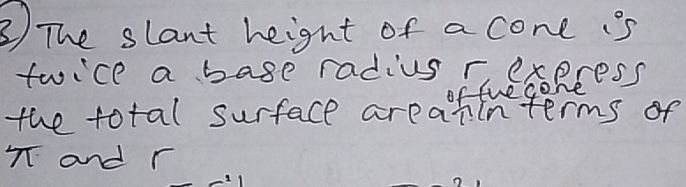 3) The slant height of a cone is
twice a base radius r express
the total surface area of the cone in terms of
π and r